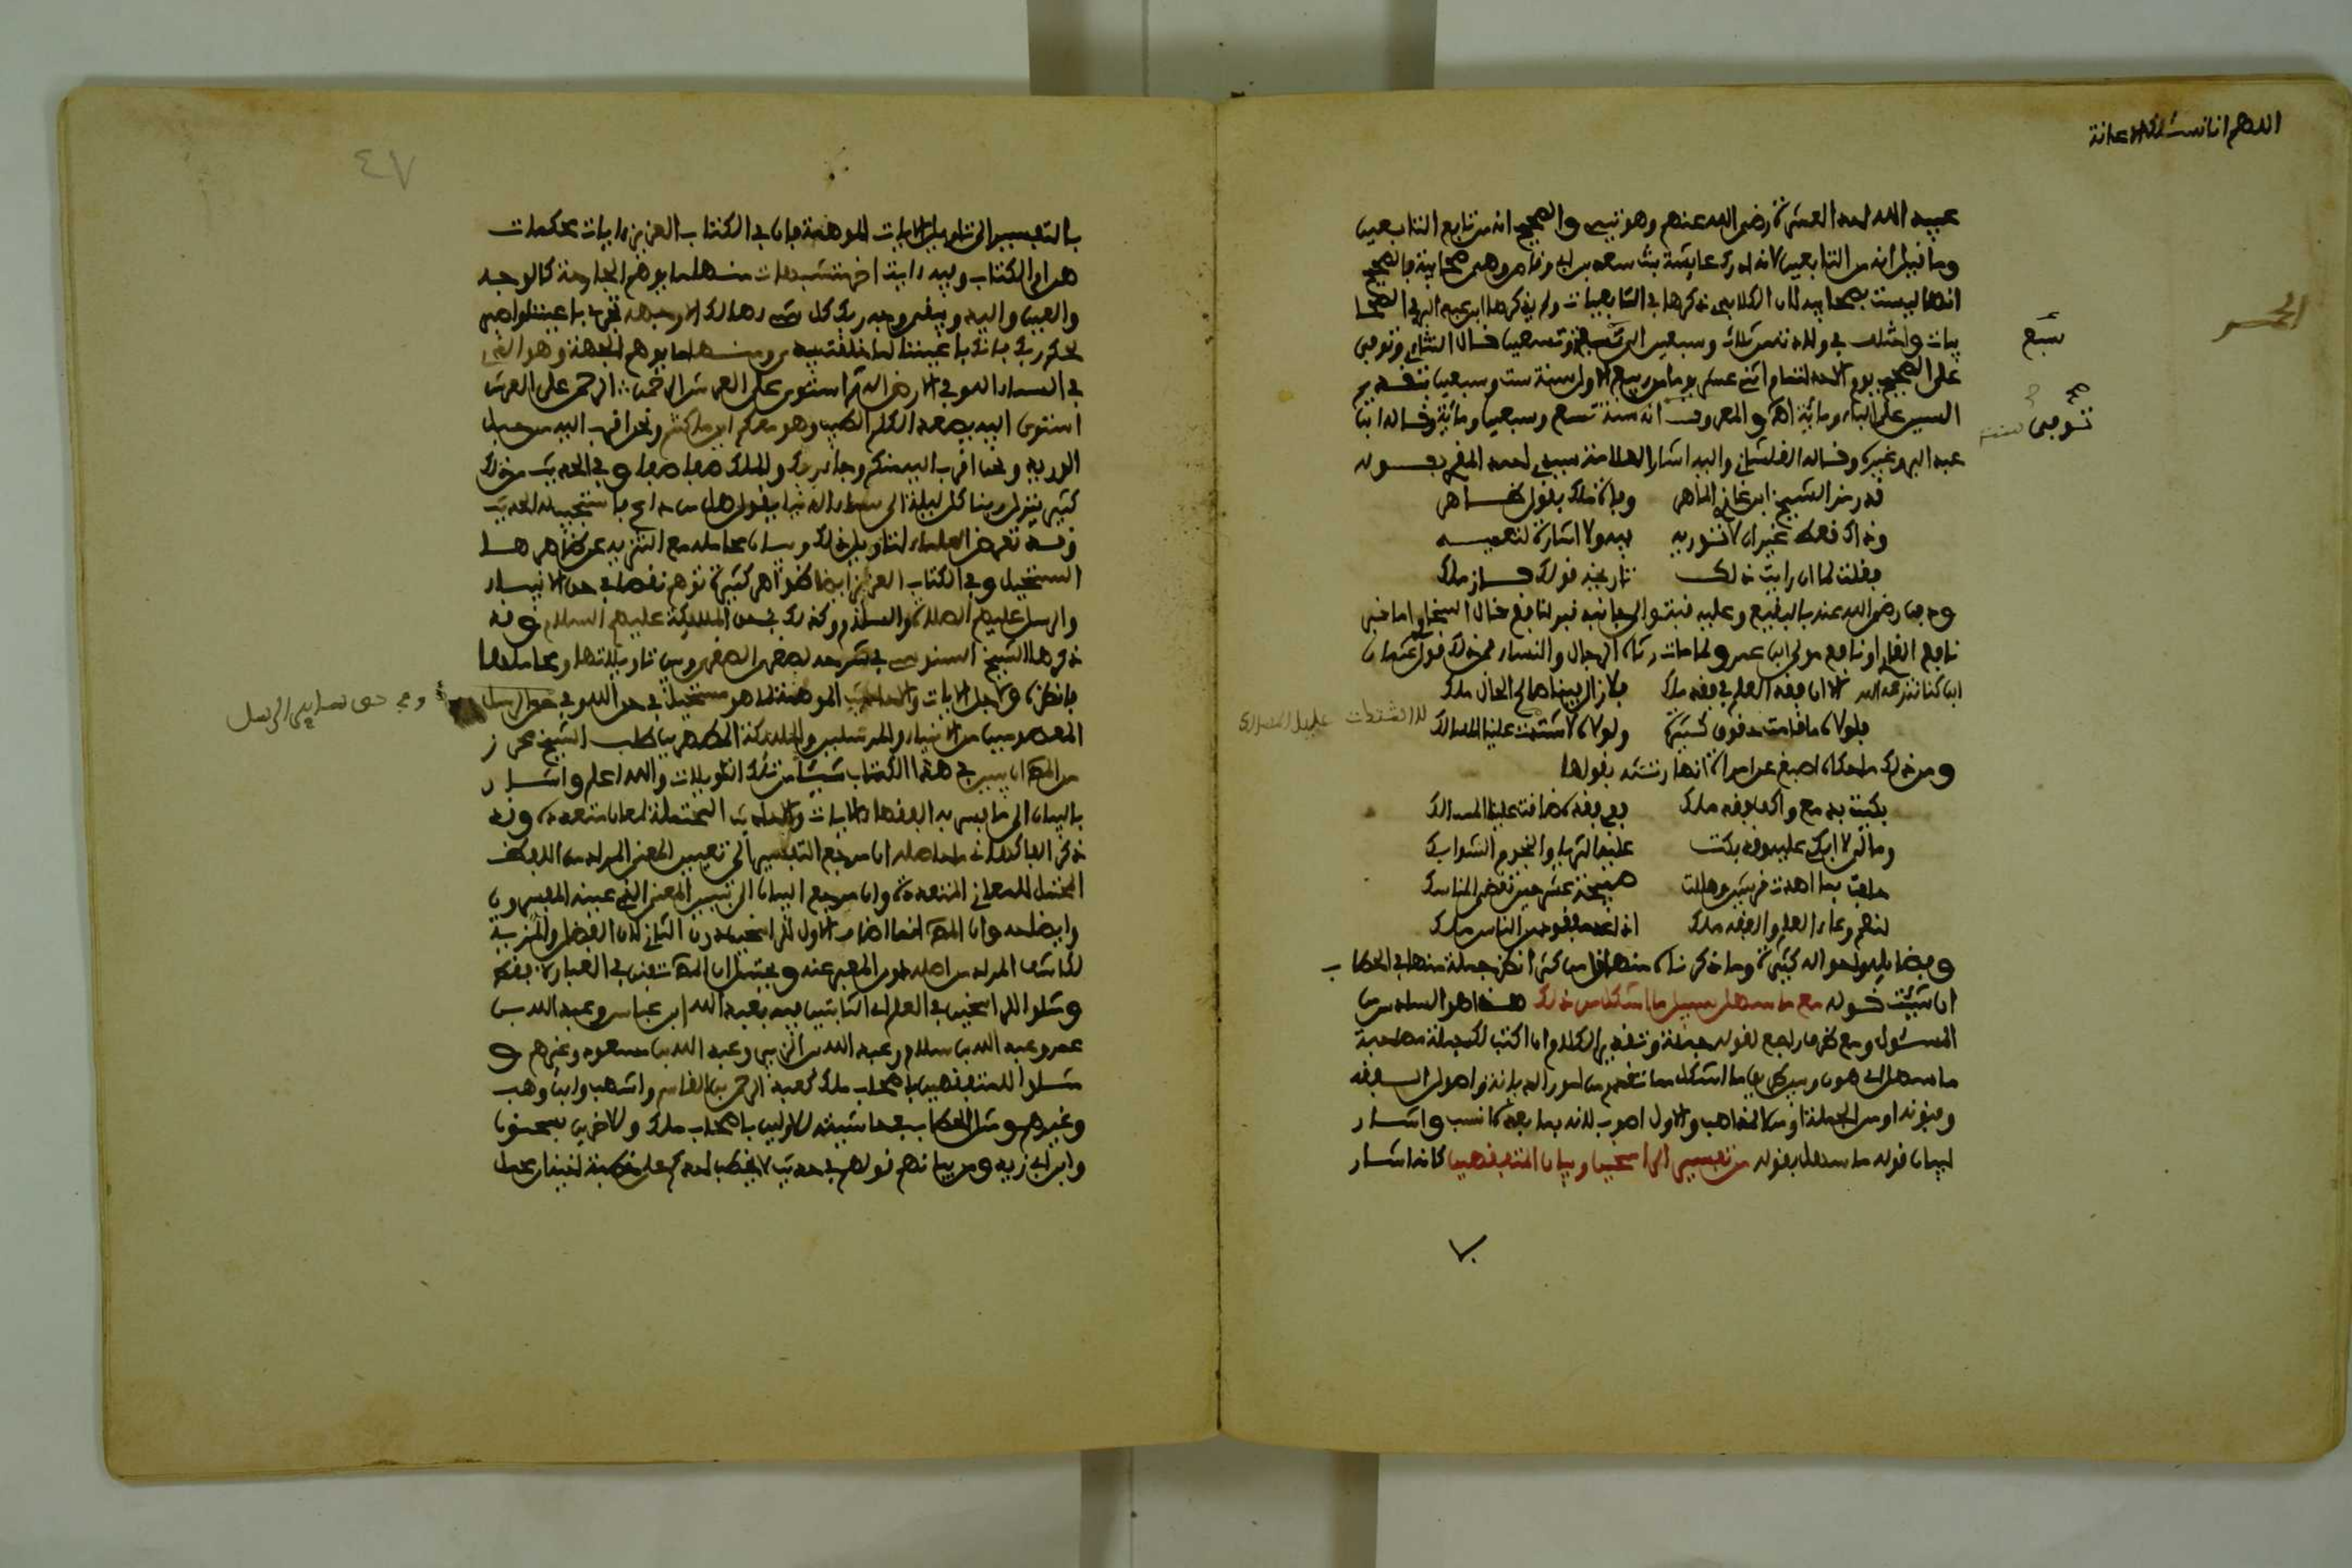 اللهم انا نسئلك الاعانة
عبيد الله احد العشرة رضي الله عنهم وهو تيمي والصحيح انه من تابع التابعين
وما قيل انه من التابعين لانه ادرك عايشة بنت سعد بن ابي وقاص وهي صحابية فالصحيح
انها ليست بصحابية لان الكلابي ذكرها في التابعيات ولم يذكرها ابن عبد البر في الصحا
بيات واختلف في ولادته من ثلاث وسبعين الى سبع وتسعين قال التتائي وتوفي
سبع
على الصحيح يوم الاحد لتمام اثني عشر يوما من ربيع الاول سنة ست وسبعين بتقديم
السين على الباء ومائة اهـ والمعروف انه سنة تسع وسبعين ومائة وقاله ابن
توفي سنة
عبد البر وغيره وقاله الفلشاني واليه اشار العلامة سيدي احمد المقري بقوله
قد رمز الشيخ ابن غازي الماهر وفاة ملك بقول ظاهر
وذاك فعظ غير ان لا توريه فيه ولا اشارة لتعميه
فقلت لما ان رايت ذلك تاريخه قولك فاز ملك
ودفن رضي الله عنه بالبقيع وعليه قبة والى جانبه قبر لنافع قال السخاوي اما
نافع القاري او نافع مولى ابن عمر ولما مات رثاه الرجال والنساء فمن ذلك قول عثمان
ابن كنانة رحمه الله الا ان فقد العلم في فقد ملك فلا زال فينا صالح الحال ملك
فلولاه ما قامت حقوق كثيرة ولولاه لاشتدت علينا المسالك
ومن ذلك ما حكاه اصبغ عن امراة انها رثته بقولها
بكيت بدمع واكف فقد ملك ففي فقده ضاقت علينا المسالك
ومالي لا ابكي عليه وقد بكت عليه الثريا والنجوم الشوابك
حلفت بما اهدت قريش وحللت صبيحة عشر حين تقضى المناسك
لنعم وعاء العلم والفقه ملك اذا عد مفقود من الناس ملك
وفضايله واحواله كثيرة وما ذكرناه منها اقل من كثير انظر جملة منها في الحطاب
ان شئت قوله مع ما سهل سبيل ما اشكل من ذلك هذا هو السادس من
المسئول ومع ظرف راجع لقوله جملة وتقدير الكلام ان اكتب لك جملة مصاحبة
ما سهل اي هون وسبيل اي طريق ما اشكل مما تقدم من امور الديانة واصول الفقه
وفنونه او من الجملة او من المذاهب والاول اصوب لانه بما بعده انسب واشار
لبيان قوله ما سهل بقوله من تفسير الراسخين وبيان المتفقهين كانه اشار
٤٧
بالتفسير الى تاويل الايات الموهمة فان في الكتاب العزيز ايات محكمات
هن ام الكتاب وفيه ايات اخر متشابهات منها ما يوهم الجارحة كالوجه
والعين واليد ويبقى وجه ربك كل شيء هالك الا وجهه تجري باعيننا واصبر
لحكم ربك فانك باعيننا لما خلقت بيدي ومنها ما يوهم الجهة وهو الذي
في السماء اله وفي الارض اله ثم استوى على العرش الرحمن الرحمن على العرش
استوى اليه يصعد الكلم الطيب وهو معكم اين ما كنتم ونحن اقرب اليه من حبل
الوريد ونحن اقرب اليه منكم وجاء ربك والملك صفا صفا وفي الحديث من ذلك
كثير ينزل ربنا كل ليلة الى سماء الدنيا يقول هل من داع فاستجيب له الحديث
وقد تعرض العلماء لتاويل ذلك وبيان محامله مع التنزيه عن ظاهرها
المستحيل وفي الكتاب العزيز ايضا ظواهر كثيرة توهم نقصا في حق الانبياء
والرسل عليهم الصلاة والسلام وكذلك في حق الملايكة عليهم السلام وقد
ذكرها الشيخ السنوسي في شرحه لصغرى الصغرى وبين تاويلاتها ومحاملها
فانظره ولاجل الايات والاحاديث الموهمة لما هو مستحيل في حق الله وفي حق الرسل
وفي حق ساير الرسل
المعصومين من الانبياء والمرسلين والملائكة المطهرين طلب الشيخ محرز
من المص ان يبين في هذا الكتاب شيئا من تلك التاويلات والله اعلم واشار
بالبيان الى ما يفسر به الفقهاء الايات والاحاديث المحتملة لمعان متعددة وقد
ذكر الفاكهاني ما حاصله ان مرجع التفسير الى تعيين المعنى المراد من اللفظ
المحتمل للمعاني المتعددة وان مرجع البيان الى تبيين المعنى الذي عينه المفسرون
وايضاحه وان المص انما اضاف الاول للراسخين دون الثاني لان الفضل والمزية
لكاشف المراد من اصله دون المعبر عنه ويحتمل ان المص تفنن في العبارة فقط
ومثلوا الراسخين في العلم اي الثابتين فيه بعبد الله ابن عباس وعبد الله بن
عمر وعبد الله بن سلام وعبد الله بن الزبير وعبد الله بن مسعود وغيرهم و
مثلوا للمتفقهين باصحاب ملك كعبد الرحمن بن القاسم واشهب وابن وهب
وغيرهم ومثل الحطاب في حاشيته للاولين باصحاب ملك وللاخرين بسحنون
وابن ابي زيد ومن بيانهم قولهم في حديث لا يخطب احدكم على خطبة اخيه